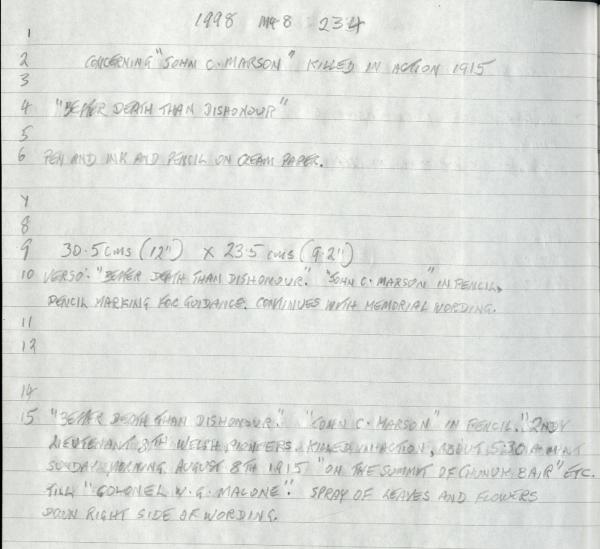 1998 MG 8 234
1
2 CONCERNING "JOHN C. MARSON" KILLED IN ACTION 1915
3
4 "BETTER DEATH THAN DISHONOUR"
5
6 PEN AND INK AND PENCIL ON CREAM PAPER.
7
8
9 30.5 cms (12") x 23.5 cms (9.2")
10 VERSO: "BETTER DEATH THAN DISHONOUR." "JOHN C. MARSON" IN PENCIL,
PENCIL MARKING FOR GUIDANCE. CONTINUES WITH MEMORIAL WORDING.
11
12
14
15 "BETTER DEATH THAN DISHONOUR." "JOHN C. MARSON" IN PENCIL." 2ND
LIEUTENANT 8TH WELSH PIONEERS. KILLED IN ACTION, ABOUT 5:30 A.M.
SUNDAY MORNING AUGUST 8TH 1915 "ON THE SUMMIT OF CHUNUK BAIR" ETC.
TILL "COLONEL W. G. MALONE." SPRAY OF LEAVES AND FLOWERS
DOWN RIGHT SIDE OF WORDING.